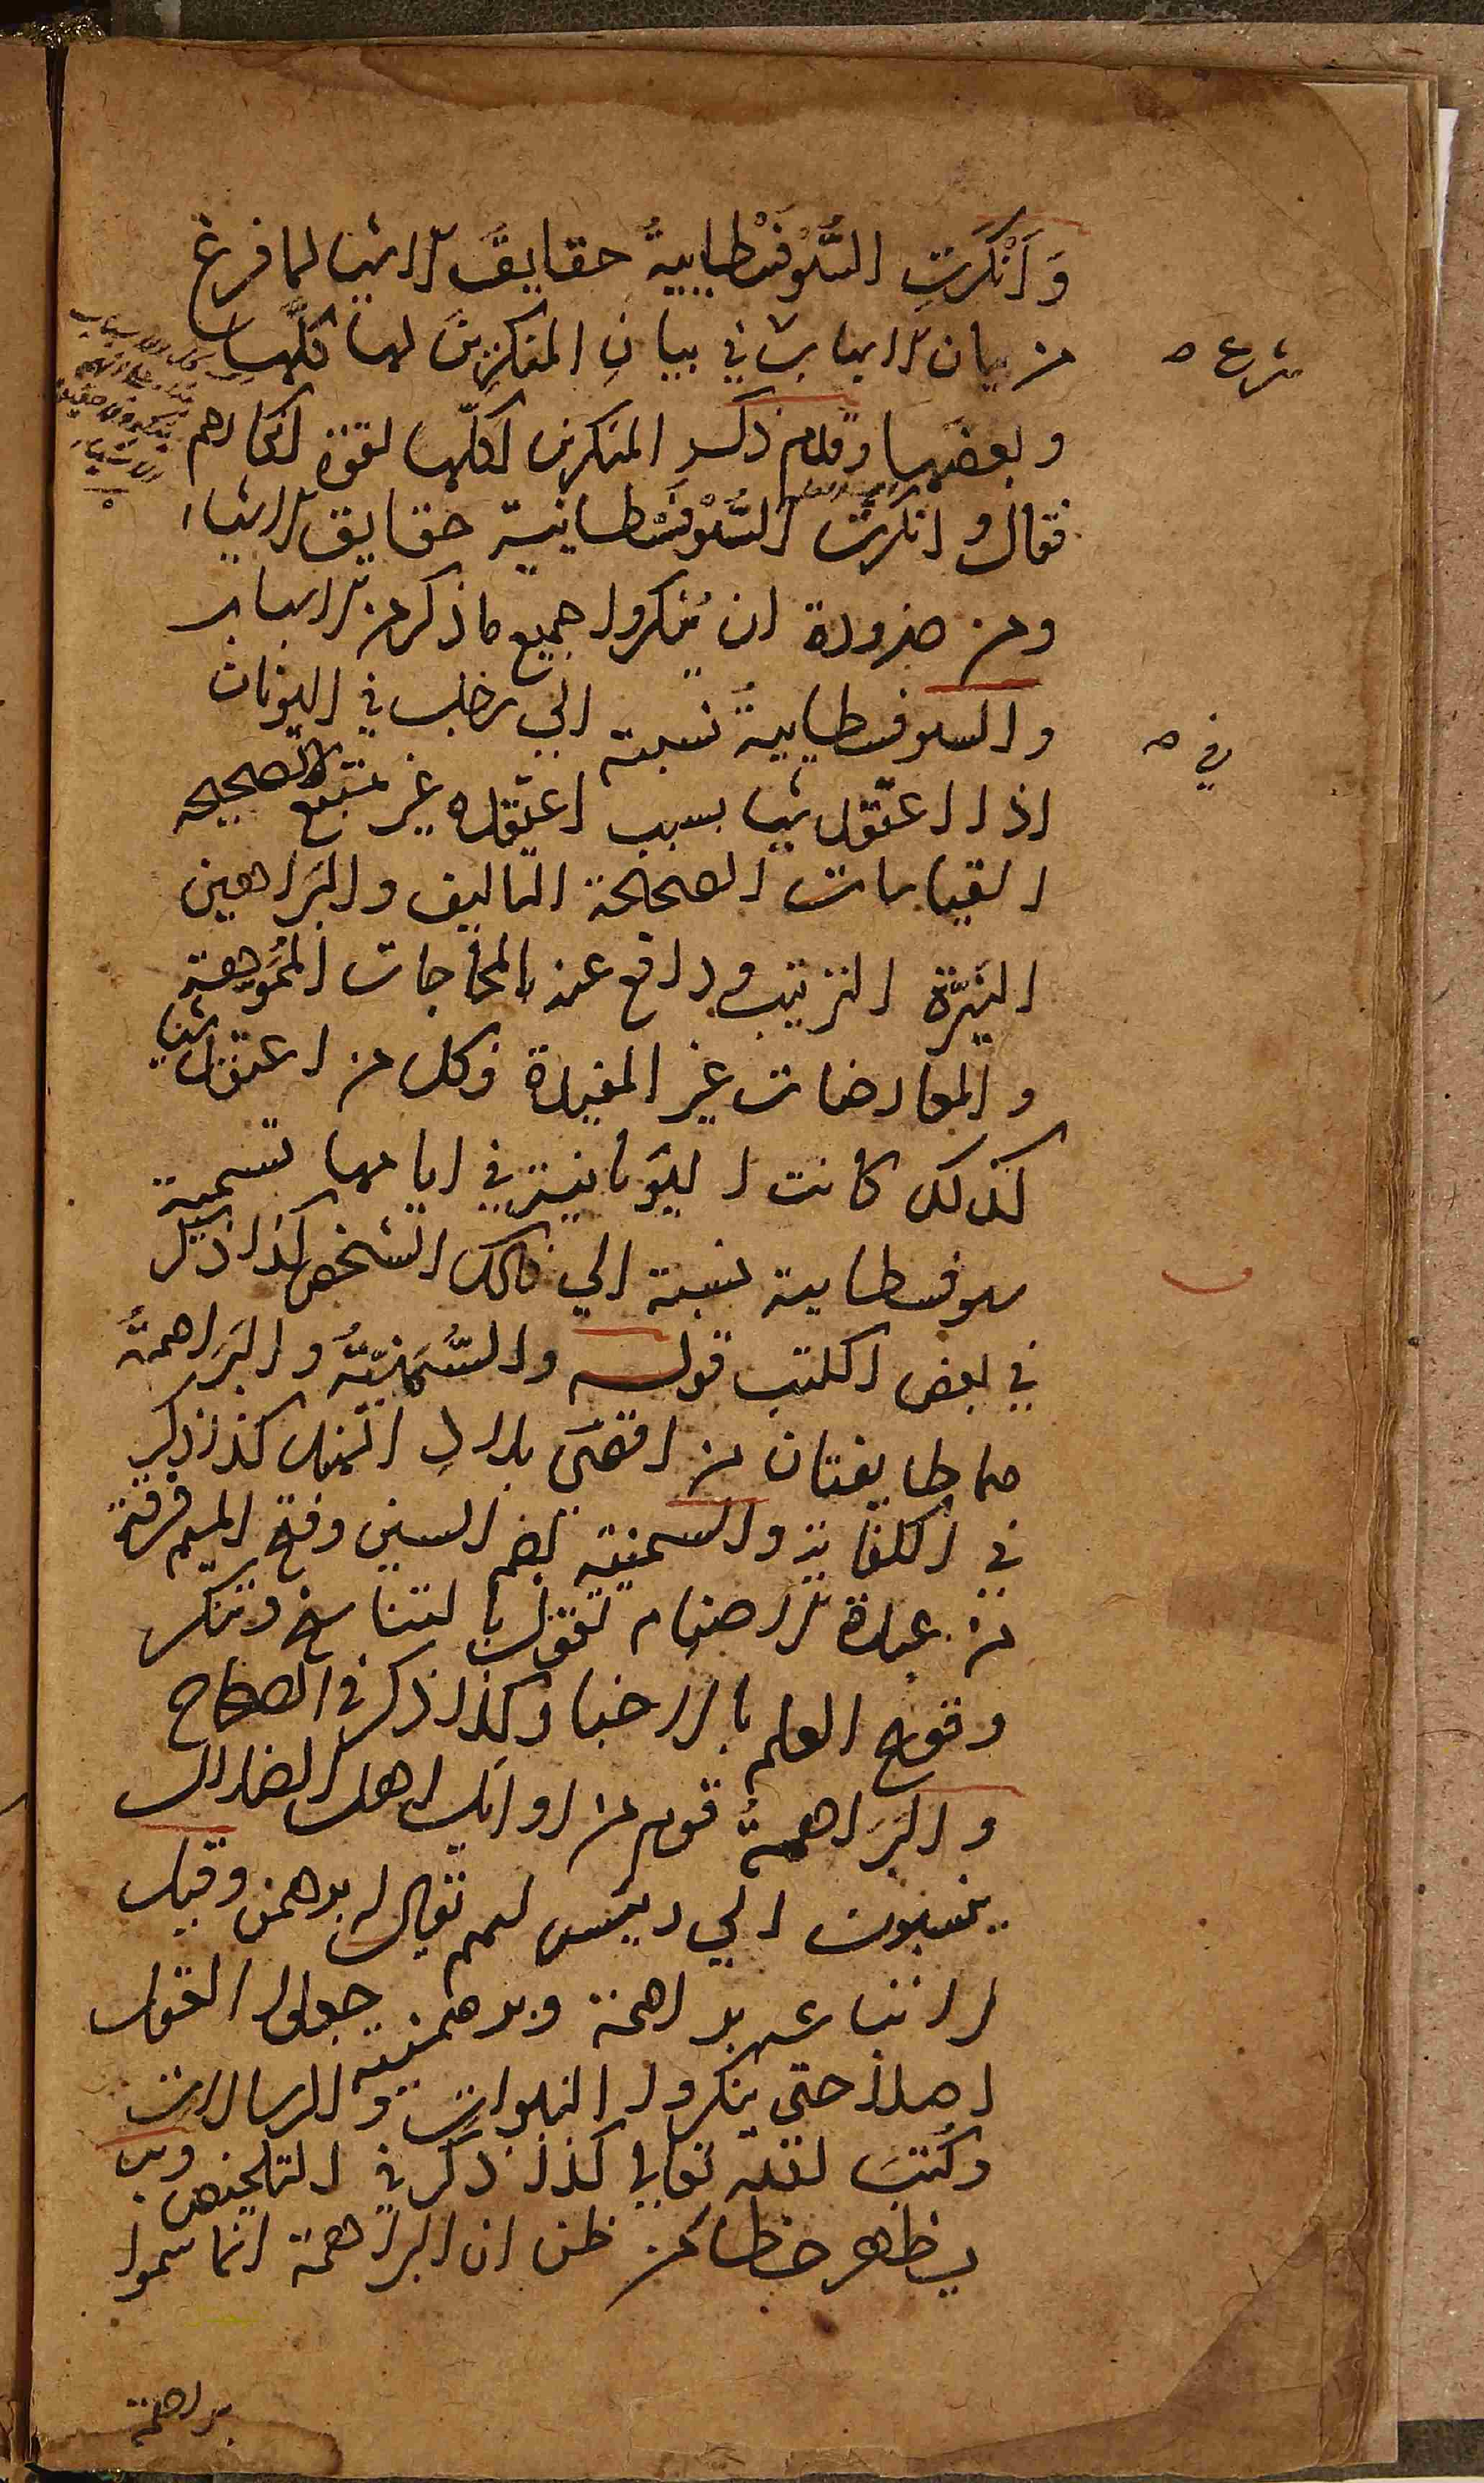 وَاَنْكَرَتِ السُّوْفَسْطايِيةُ حقايقَ الاشيا لما فرغ
من بيان الاسباب شرع في بيان المنكرين لها كلها
وبعضها وقدم ذكر المنكرين لكلها لقوة انكارهم
فقال وانكرت السُّوْفَسْطايية حقايق الاشياء
ومن ضرورة ان ينكروا جميع ما ذكر من الاسباب
والسوفسطاييةُ نسبة الي رجل في اليونان
اذا اعتقد شيا بسبب اعتقده غير متبع في الصحيحه
القياسات الصحيحة التاليف والبراهين
النيّرة الترتيب ودافع عنه بالمحاجات المُمَوهة
والمعارضات غير المفيدة فكل من اعتقد شيا
كذلك كانت اليونانية في ايامها تسمية
سوفسطايية نسبة الي ذلك الشخص كذا ذكر
في بعض الكتب قوله والسُّمَنِيّةُ والبَراهمةُ
هما طايفتان من اقصَي بلاد الهند كذا ذكر
في الكفاية والسمنية بضم السين وفتح الميم فرقة
من عبدة الاصنام تقول بالتناسخ وتنكر
وقوع العلم بالاخبار كذا ذكر في الصحاح
والبَراهمةُ قوم من اوائل اهل الضلال
ينسبون الي رييس لهم يقال له برهمن وقيل
لاتباعه براهمة وبرهمنية جعلوا القول
اصلا حتي ينكروا النبوات والرسالات
وكُتبَ الله تعالي كذا ذكر في التلخيص وبه
يظهر خطا من ظن ان البراهمة انما سموا
براهمة